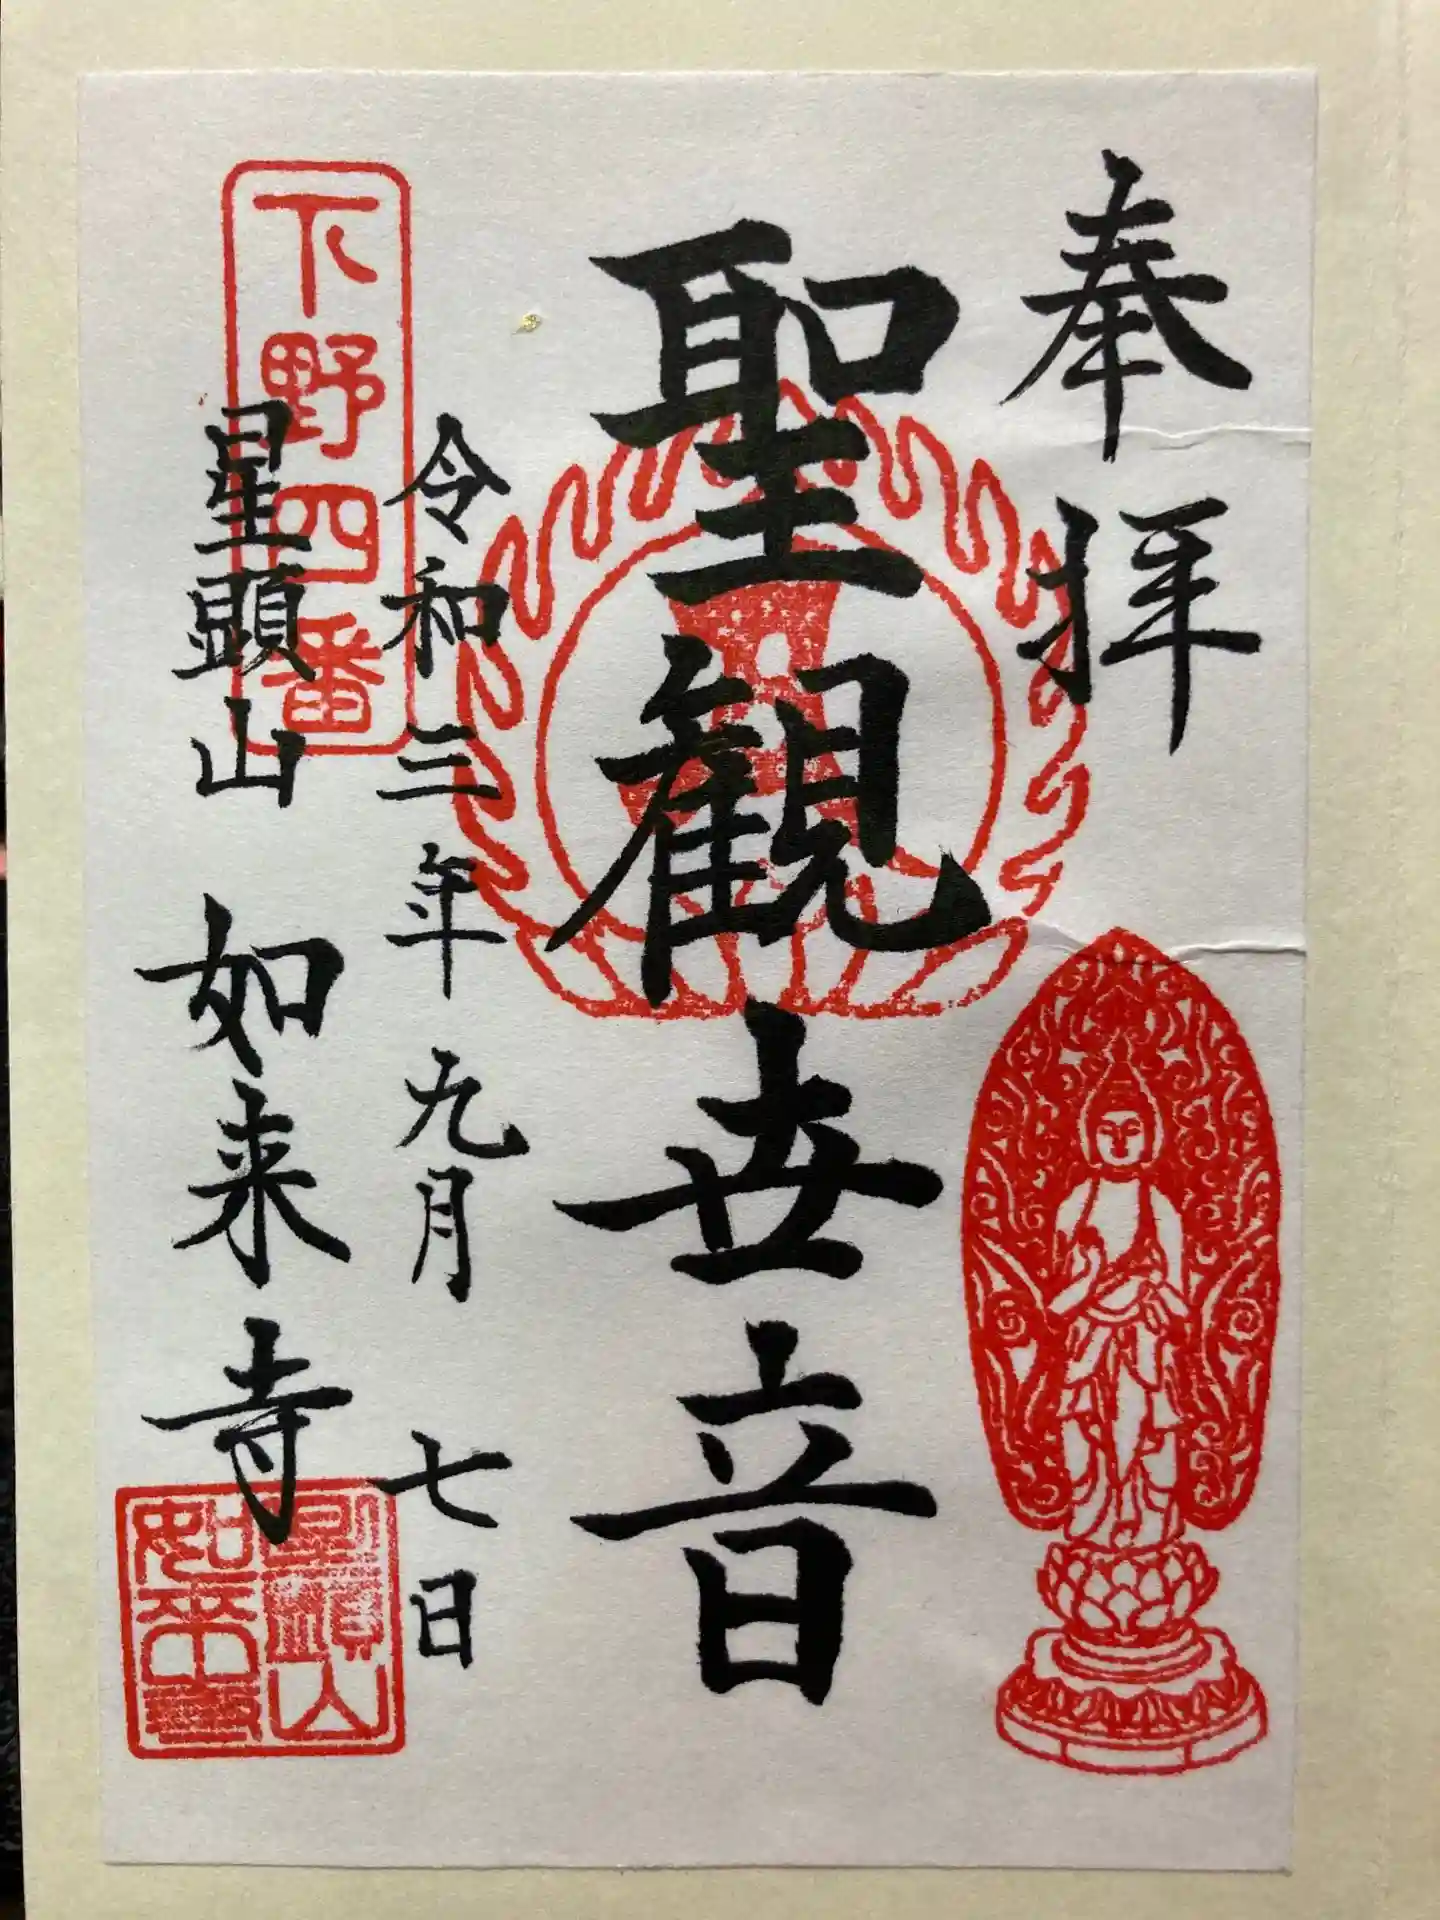 奉拝
聖観世音
令和三年九月七日
下野四番
星頭山 如来寺
星頭山
如来寺